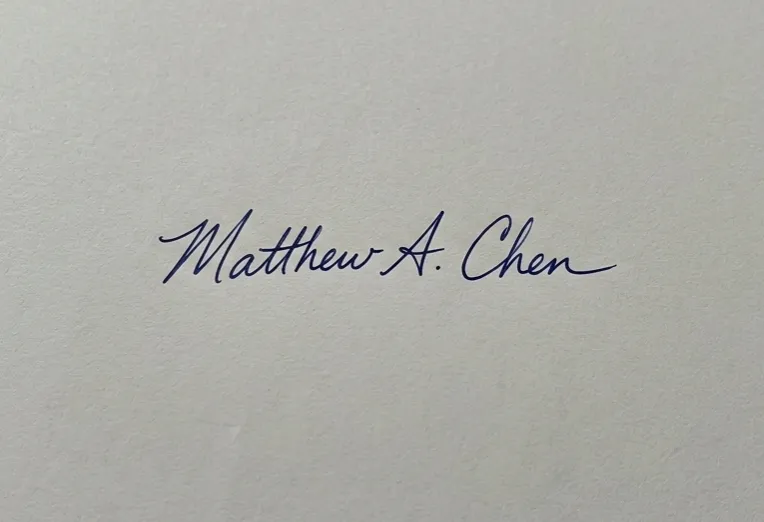 Matthew A. Chen